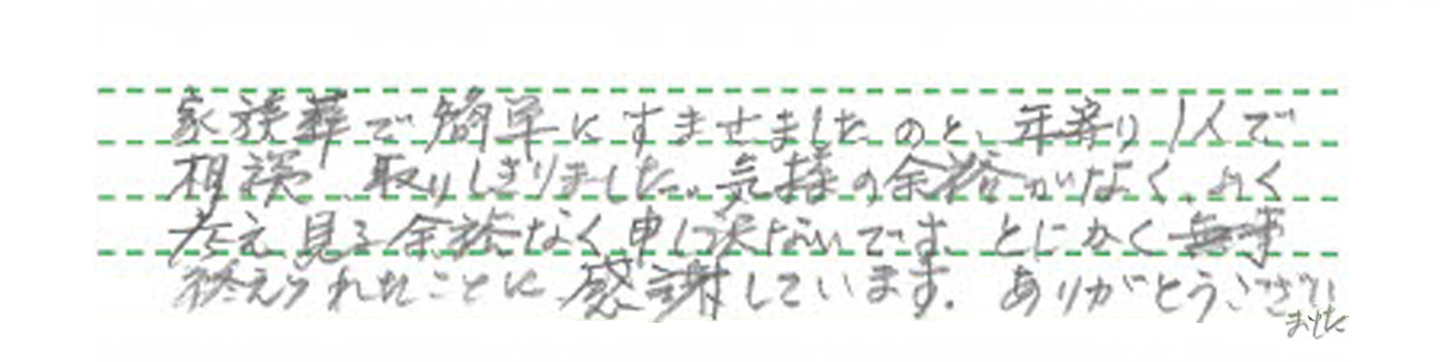 家族葬で簡単にすませましたのと、年寄り1人で
相談、取りしきりました。気持の余裕がなく、よく
考え見る余裕なく申し訳ないです。とにかく無事
終えられたことに感謝しています。ありがとうござい
ました